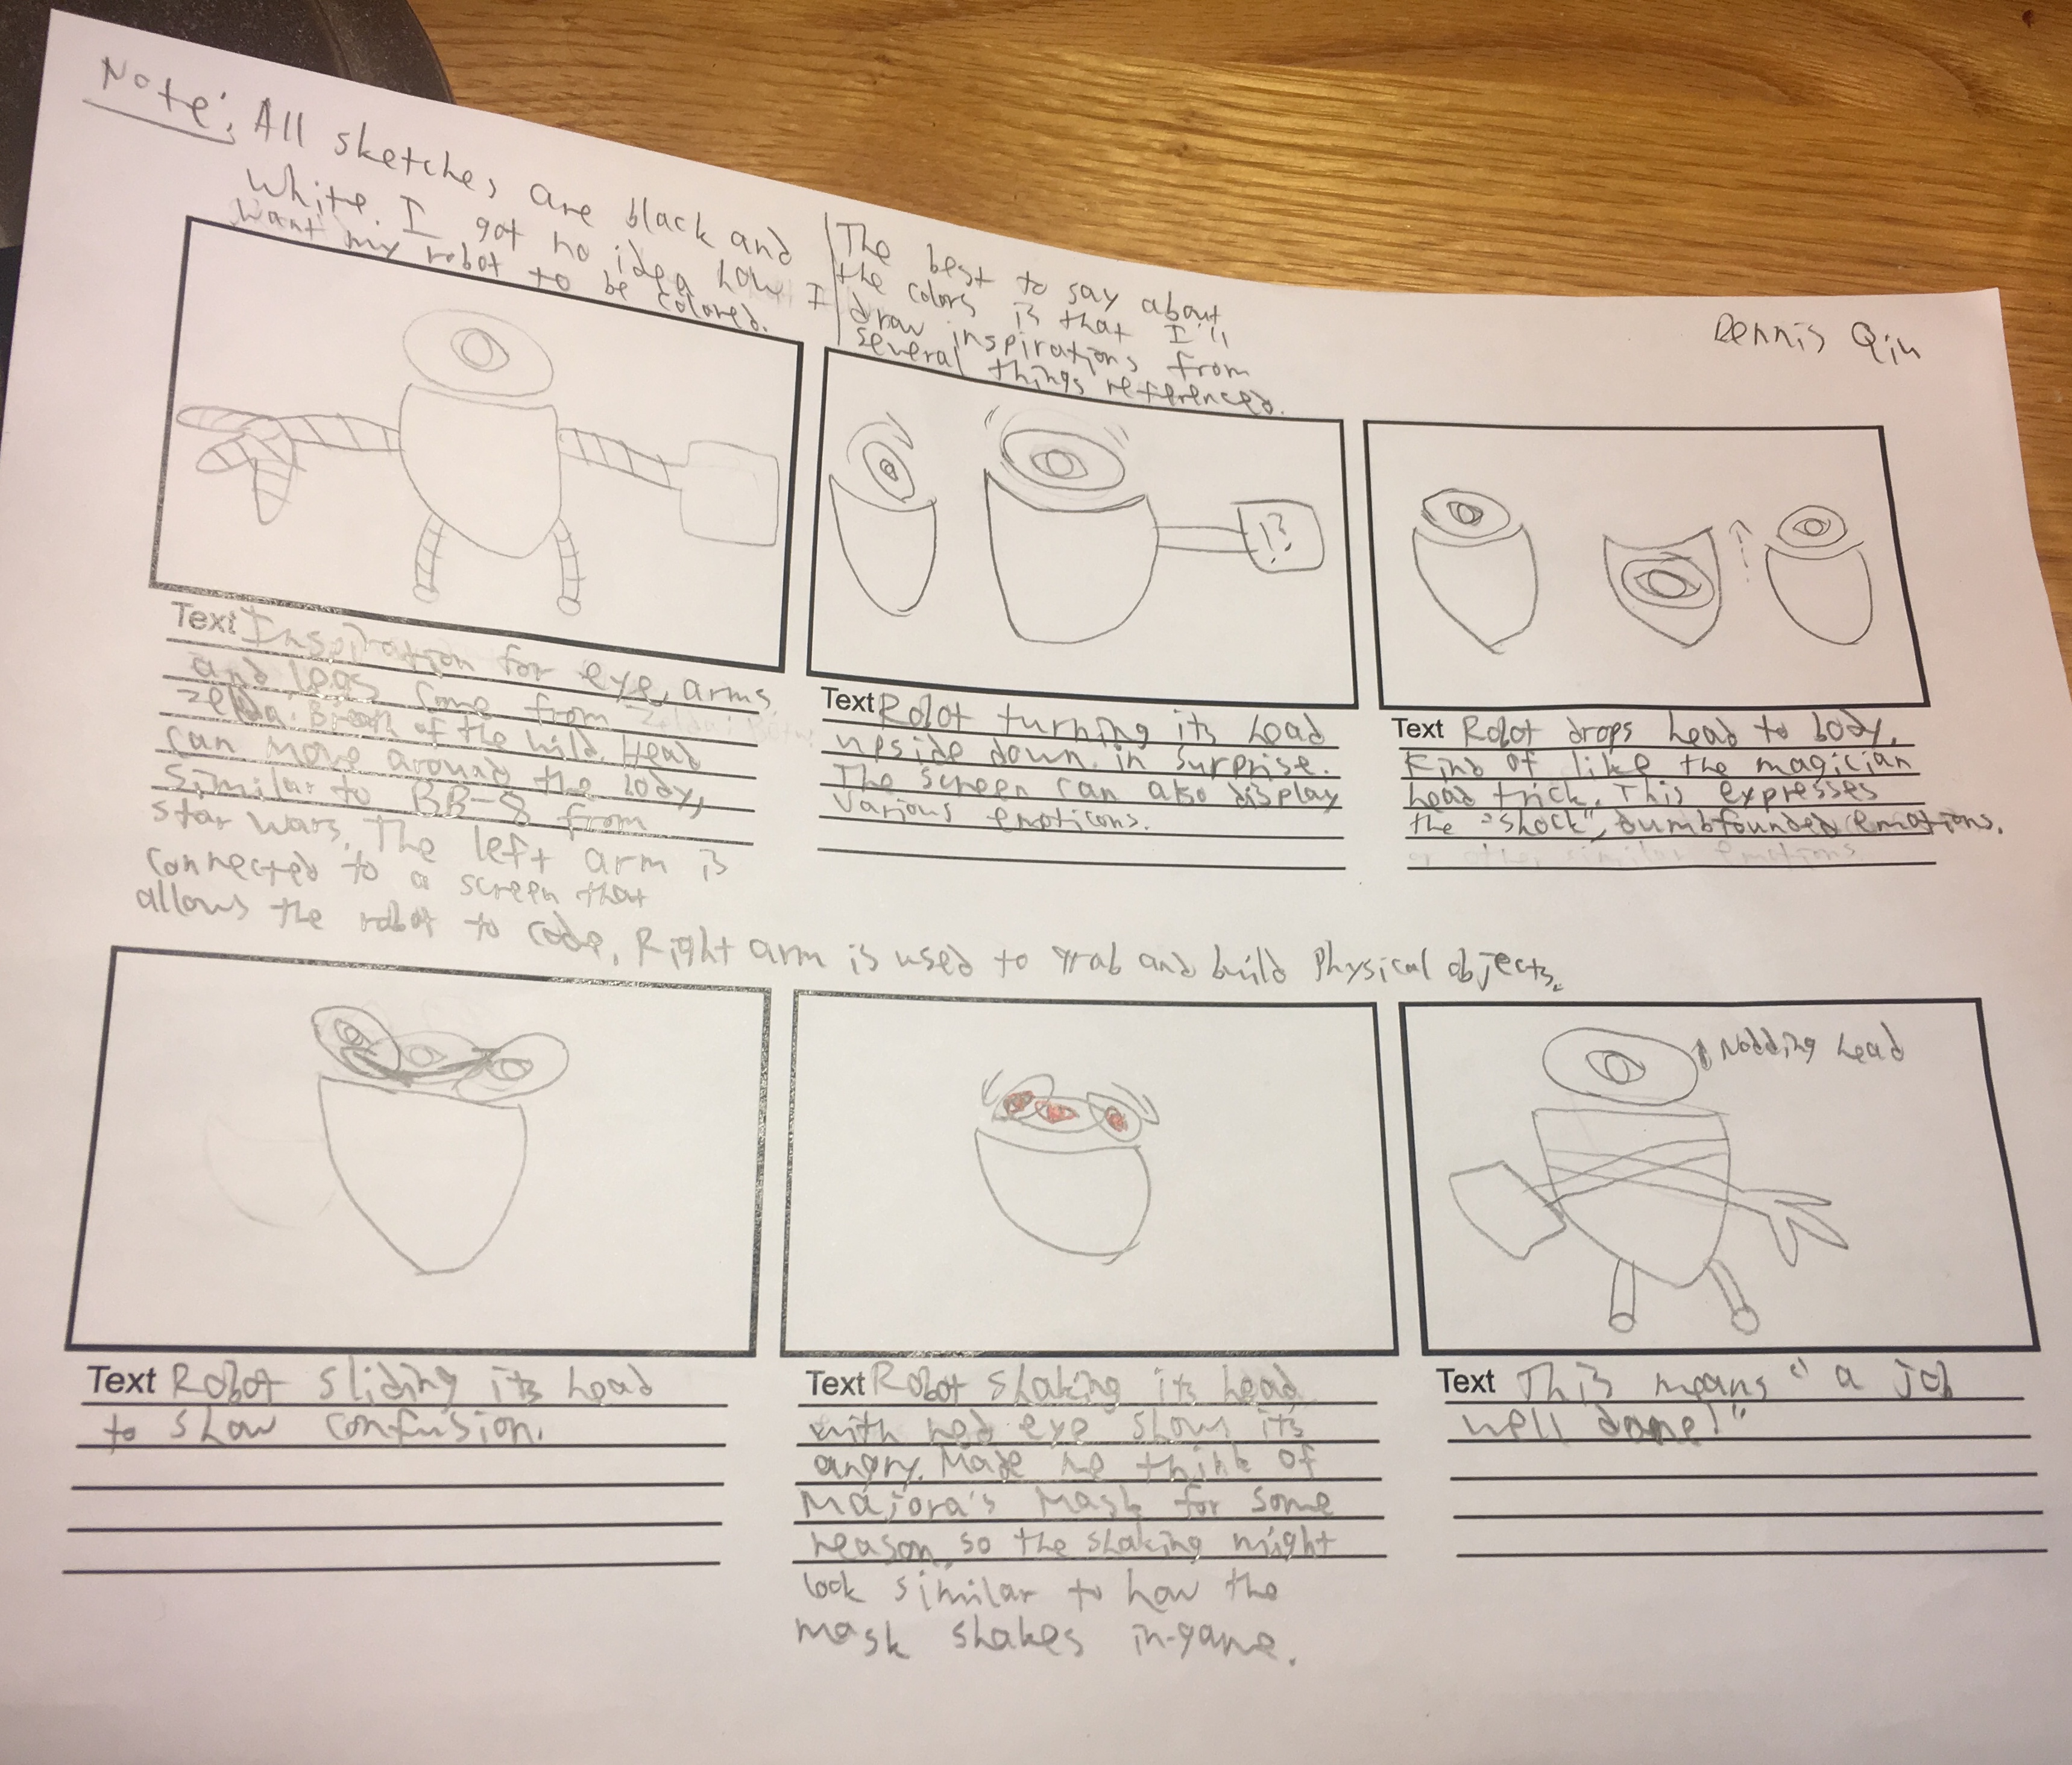 Note: All sketches are black and
white. I got no idea how I
want my robot to be colored.
The best to say about
the colors is that I'll
draw inspirations from
several things referenced.
Dennis Qiu
!?
Text Inspiration for eye, arms,
and legs come from
Zelda: Breath of the Wild. Head
can move around the body,
similar to BB-8 from
Star Wars. The left arm is
connected to a screen that
allows the robot to code. Right arm is used to grab and build physical objects.
Text Robot turning its head
upside down in surprise.
The screen can also display
various emoticons.
Text Robot drops head to body.
Kind of like the magician
head trick. This expresses
the "shock", dumbfounded emotions.
or other similar emotions
Nodding head
Text Robot sliding its head
to show confusion.
Text Robot shaking its head
with red eye shows its
angry. Made me think of
Majora's Mask for some
reason, so the shaking might
look similar to how the
mask shakes in-game.
Text This means "a job
well done!"